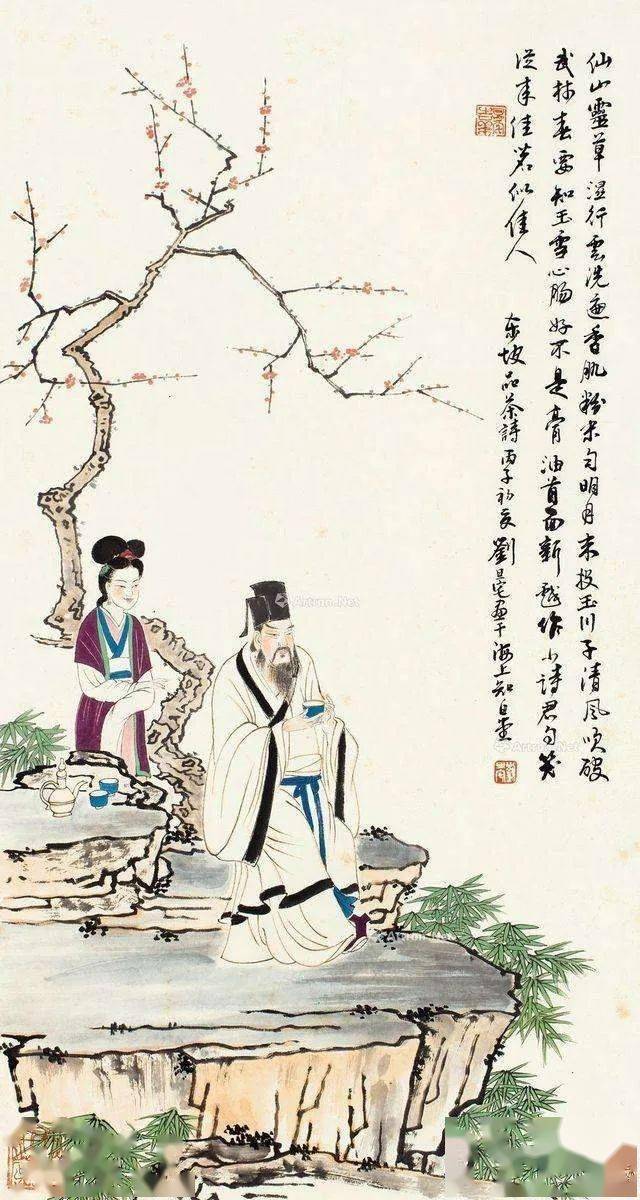 仙山靈草湿行雲洗遍香肌粉未匀明月来投玉川子清風吹破
武林春要知玉雪心肠好不是膏油首面新戲作小詩君勿笑
從来佳茗似佳人 东坡品茶詩丙子初夏劉旦宅画于海上知白堂
Artron.Net
Artron.Net